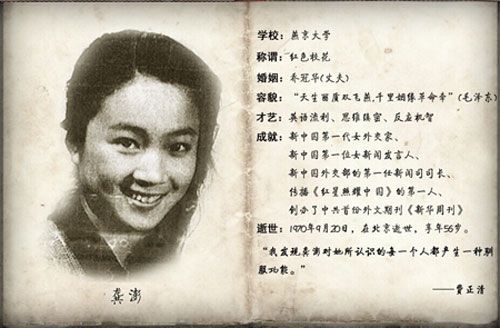 学校：燕京大学
称谓：红色校花
婚姻：乔冠华(丈夫)
容貌：“天生丽质双飞燕,千里姻缘革命牵”(毛泽东)
才艺：英语流利、思维缜密、反应机智
成就：新中国第一代女外交家、
新中国第一位女新闻发言人、
新中国外交部的第一任新闻司司长、
传播《红星照耀中国》的第一人、
创办了中共首份外文期刊《新华周刊》
逝世：1970年9月20日，在北京逝世，享年56岁。
“我发现龚澎对她所认识的每一个人都产生一种驯
服功能。”
——费正清
龚澎